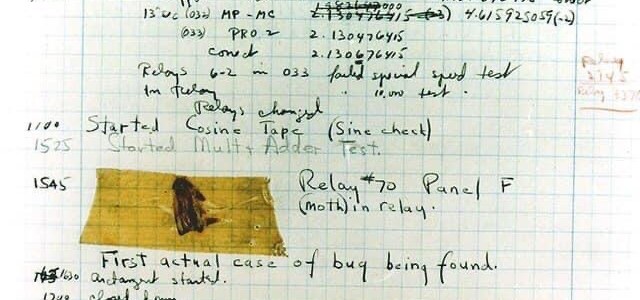 13" uc (032) MP - MC 2.130476415 4.615925059(-2)
(033) PRO 2 2.130476415
correct 2.130676415
Relays 6-2 in 033 failed special speed test
In Relay " 10.000 test.
Relay
Relays changed
1100 Started Cosine Tape (Sine check)
1525 Started Mult + Adder Test.
1545 Relay #70 Panel F
(moth) in relay.
First actual case of bug being found.
1630 antangent started.
1700 closed down.